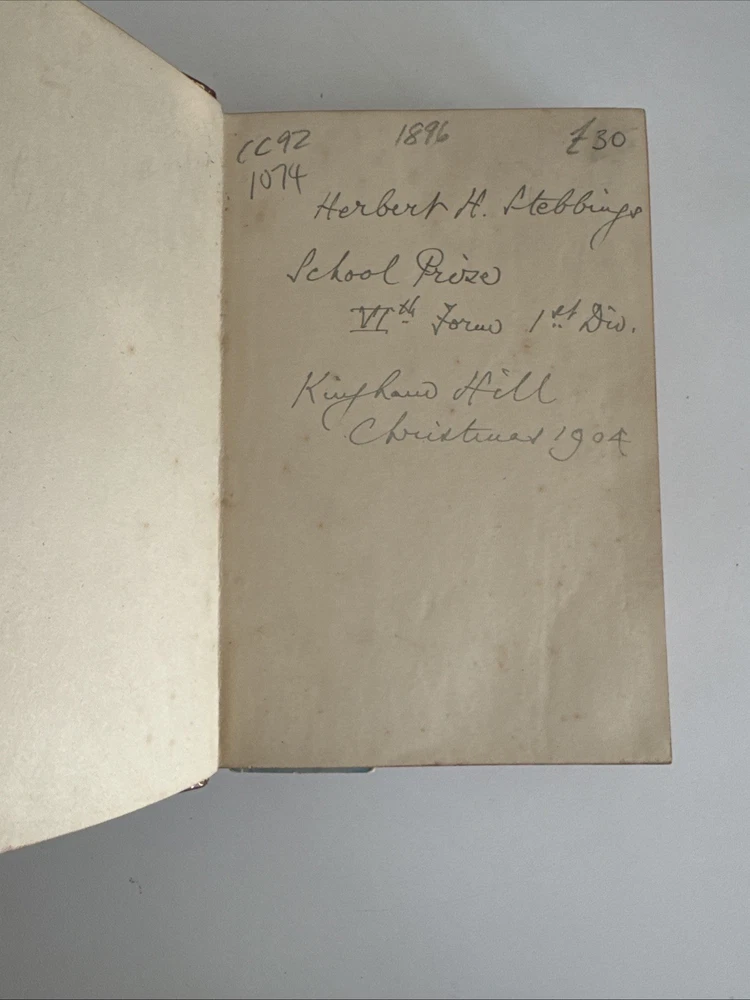 CC92 1896 £30
1074
Herbert H. Stebbings
School Prize
VIth Form 1st Div.
Kingham Hill
Christmas 1904